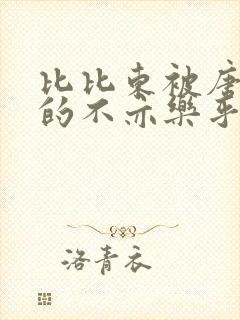 比比东被唐
的不亦乐乎
洛青衣